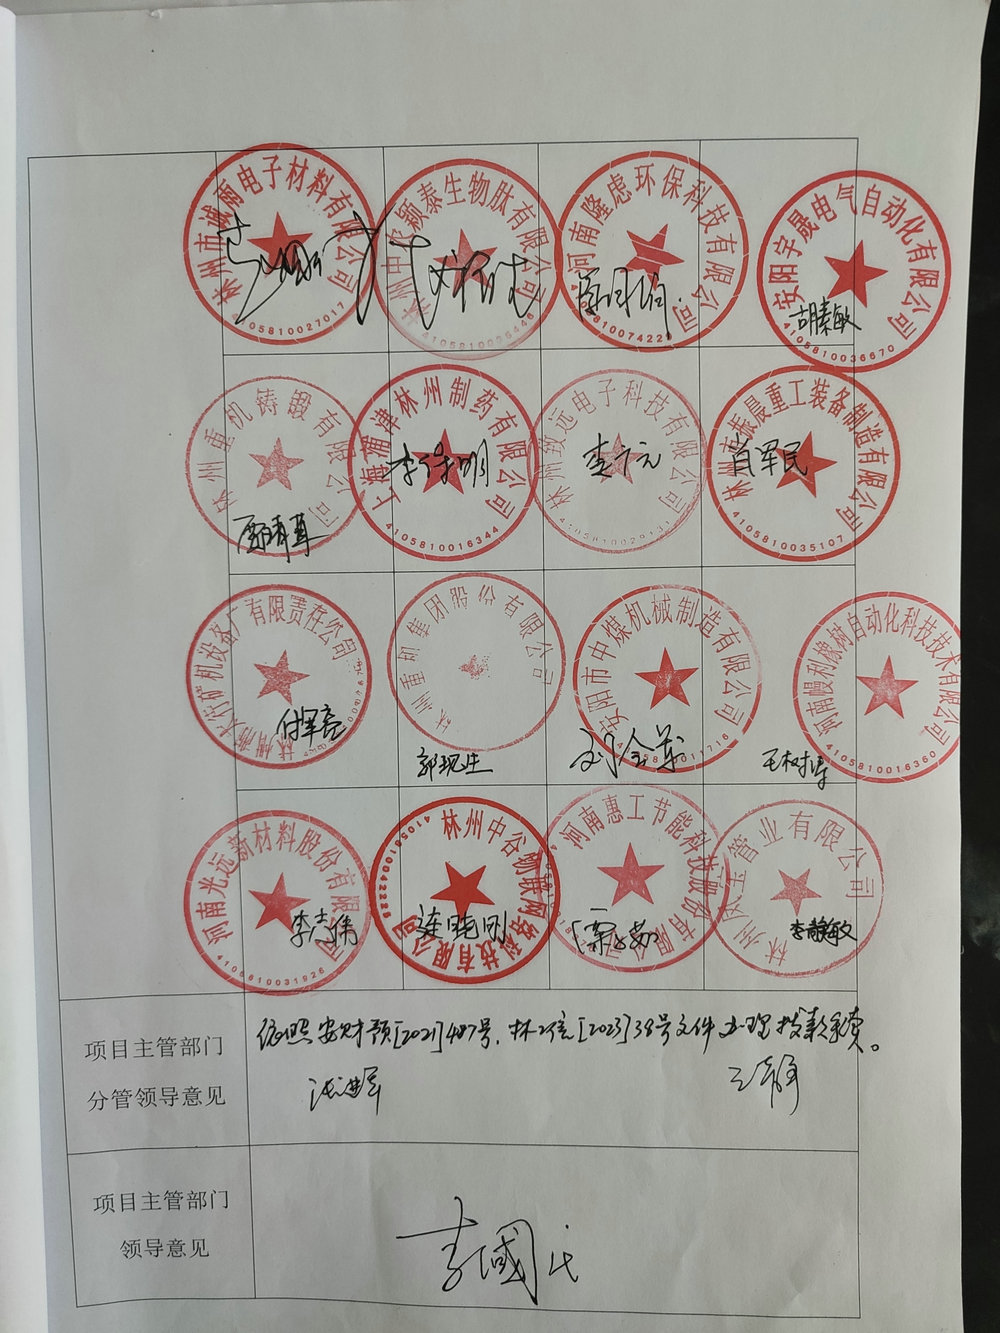 林州市诚雨电子材料有限公司
4105810027017
颖泰生物肽有限公司
4105810075446
河南隆虑环保科技有限公司
安阳宇晟电气自动化有限公司
4105810036670
胡素敏
林州重机铸锻有限公司
上海浦津林州制药有限公司
4105810016344
林州致远电子科技有限公司
4105810029131
李广元
林州市振晨重工装备制造有限公司
4105810035107
肖军民
矿机设备厂有限责任公司
付军亮
林州重机集团股份有限公司
郭现生
安阳市中煤机械制造有限公司
刘全义
河南幔利橡树自动化科技技术有限公司
4105810016360
王树青
河南光远新材料股份有限公司
4105810031926
李志伟
林州中谷物联网络科技有限公司
4105810042225
连晓刚
河南惠工节能科技股份有限公司
林州凤宝管业有限公司
李静敏
项目主管部门
分管领导意见
依照安财预[2021]487号,林工信[2023]38号文件办理拨款手续。
项目主管部门
领导意见
李国民